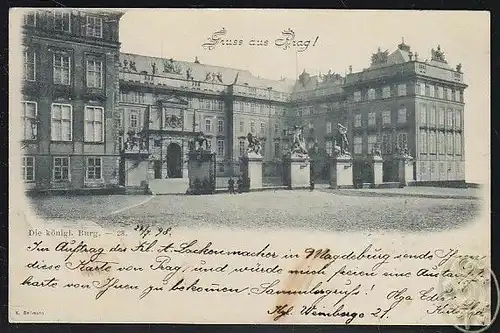 Gruss aus Prag!
Die königl. Burg. – 23.
24/7 98.
Im Auftrag des Frl. A. Lackenmacher in Magdeburg sende Ihnen
diese Karte von Prag, und würde mich freuen eine Ansichts-
karte von Ihnen zu bekommen. Sammlergruß! Olga
Kgl. Weinberge 21.